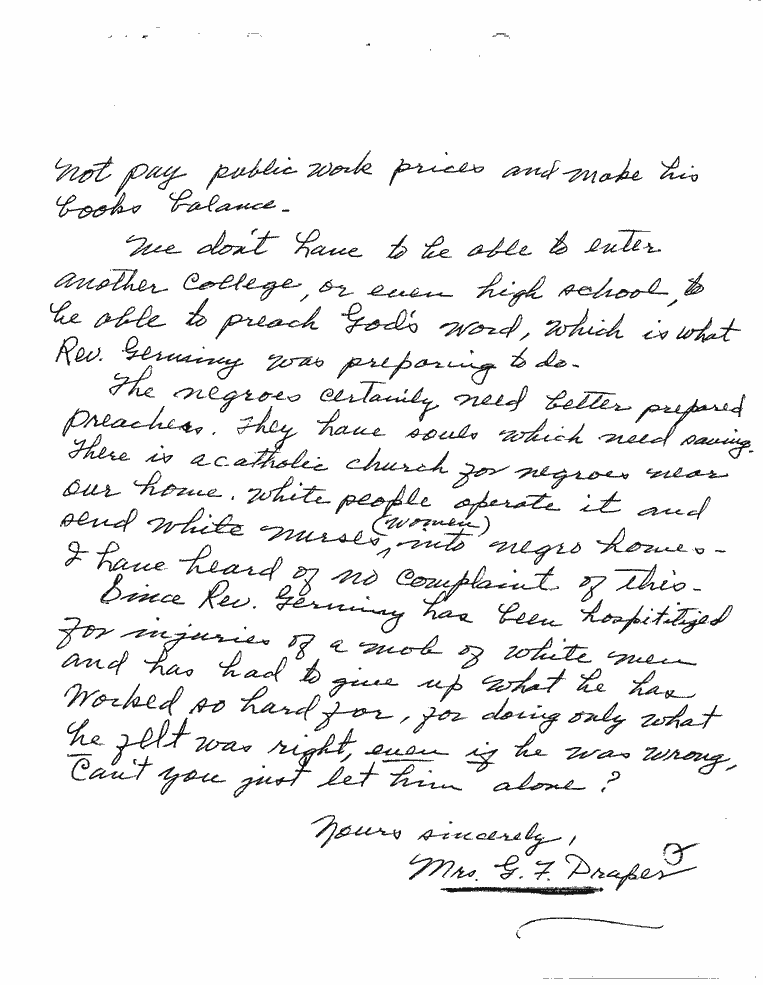 not pay public work prices and make his
books balance.
We don't have to be able to enter
another college, or even high school, to
be able to preach God's word, which is what
Rev. Germiny was preparing to do.
The negroes certainly need better prepared
preachers. They have souls which need saving.
There is a catholic church for negroes near
our home. White people operate it and
send white nurses, (women) into negro homes -
I have heard of no complaint of this -
Since Rev. Germiny has been hospitilized
for injuries of a mob of white men
and has had to give up what he has
worked so hard for, for doing only what
he felt was right, even if he was wrong,
Can't you just let him alone?
Yours sincerely,
Mrs. G. F. Draper